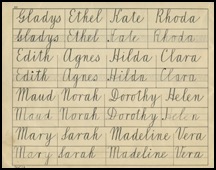 Gladys Ethel Kate Rhoda
Gladys Ethel Kate Rhoda
Edith Agnes Hilda Clara
Edith Agnes Hilda Clara
Maud Norah Dorothy Helen
Maud Norah Dorothy Helen
Mary Sarah Madeline Vera
Mary Sarah Madeline Vera